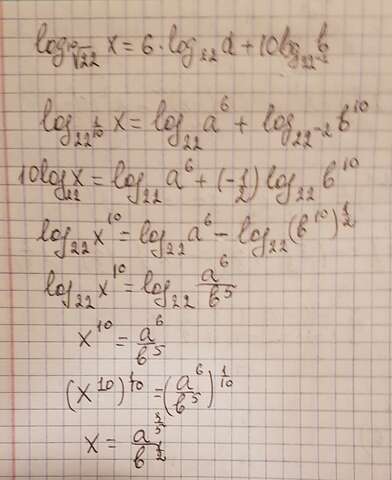 log_{\sqrt[10]{22}} x = 6 · log_{22} a + 10 log_{22^{-2}} b
log_{22^{\frac{1}{10}}} x = log_{22} a^6 + log_{22^{-2}} b^{10}
10 log_{22} x = log_{22} a^6 + (-\frac{1}{2}) log_{22} b^{10}
log_{22} x^{10} = log_{22} a^6 - log_{22} (b^{10})^{\frac{1}{2}}
log_{22} x^{10} = log_{22} \frac{a^6}{b^5}
x^{10} = \frac{a^6}{b^5}
(x^{10})^{\frac{1}{10}} = (\frac{a^6}{b^5})^{\frac{1}{10}}
x = \frac{a^{\frac{3}{5}}}{b^{\frac{1}{2}}}